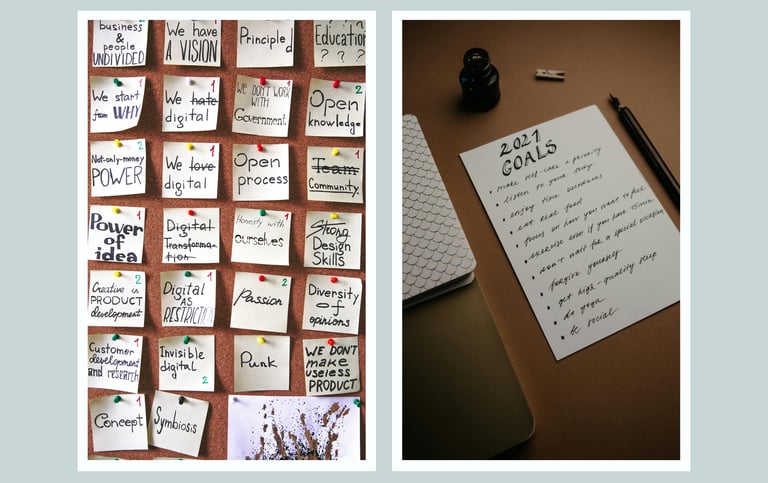 business
&
people
UNDIVIDED
2
We have
A VISION
1
Principled
Educatio
? ? ?
We start
from WHY
1
We hate
digital
WE DON'T WORK
WITH
Government
1
Open
knowledge
2
Not-only-money
POWER
2
We love
digital
1
Open
process
1
Team
Community
Power
of
idea
1
Digital
Transforma-
tion
Honesty with
ourselves
1
Strong
Design
Skills
Creative in
PRODUCT
development
2
Digital
AS
RESTRICTION
1
Passion
2
Diversity
of
opinions
Customer
development
and research
1
Invisible
digital
2
Punk
WE DON'T
make
useless
PRODUCT
Concept
1
Symbiosis
2021
GOALS
• make self-care a priority
• listen to your body
• enjoy time outdoors
• eat real food
• focus on how you want to feel
• exercise even if you have 15 min
• don't wait for a special occasion
• forgive yourself
• get high-quality sleep
• do yoga
• be social